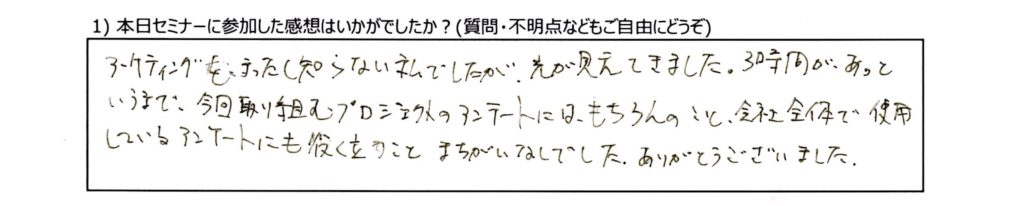 1) 本日セミナーに参加した感想はいかがでしたか？(質問・不明点などもご自由にどうぞ)
マーケティングを、まったく知らない私でしたが、光が見えてきました。3時間が、あっと
いうまで、今回取り組むプロジェクトのアンケートには、もちろんのこと、会社全体で使用
しているアンケートにも役く立つこと まちがいなしでした。ありがとうございました。